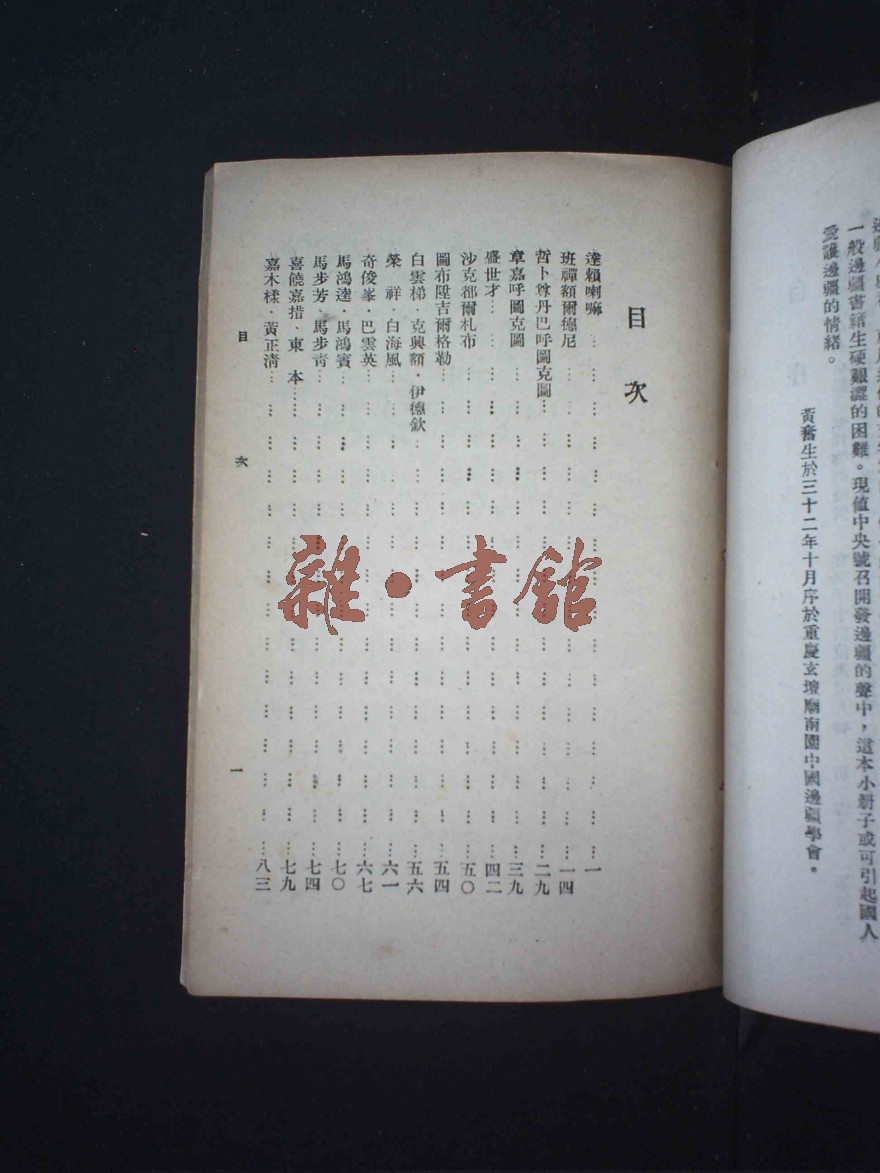 一般邊疆書籍生硬艱澀的困難。現值中央號召開發邊疆的聲中，這本小冊子或可引起國人
愛護邊疆的情緒。
黃奮生於三十二年十月序於重慶玄壇廟南園中國邊疆學會。
目次
達賴喇嘛……一
班禪額爾德尼……一四
哲卜尊丹巴呼圖克圖……二九
章嘉呼圖克圖……三九
盛世才……四二
沙克都爾札布……五〇
圖布陞吉爾格勒……五四
白雲梯·克興額·伊德欽……五六
榮祥·白海風……六一
奇俊峯·巴雲英……六七
馬鴻逵·馬鴻賓……七〇
馬步芳、馬步青……七四
喜饒嘉措、東本……七九
嘉木樣·黃正清……八三
目次
一
雜·書館